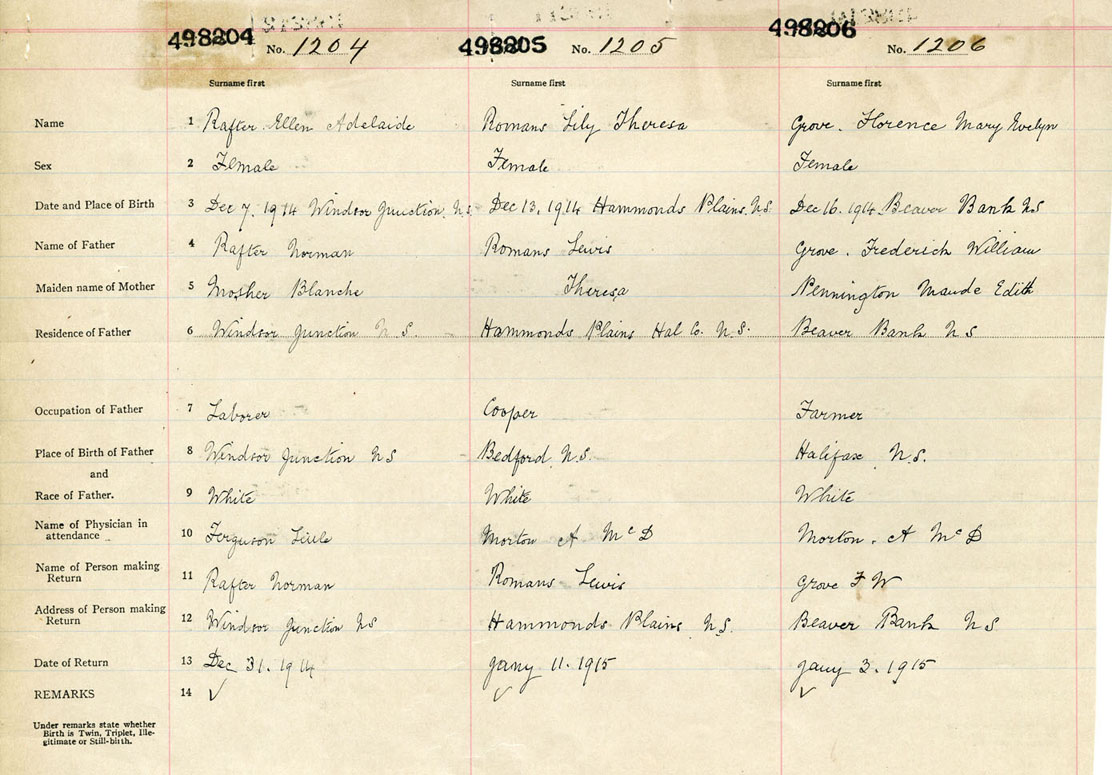 498204 No. 1204 498205 No. 1205 498206 No. 1206
Surname first Surname first Surname first
Name 1 Rafter Ellen Adelaide Romans Lily Theresa Grove. Florence Mary Evelyn
Sex 2 Female Female Female
Date and Place of Birth 3 Dec 7, 1914 Windsor Junction N.S. Dec 13, 1914 Hammonds Plains, N.S. Dec 16. 1914 Beaver Bank N S
Name of Father 4 Rafter Norman Romans Lewis Grove. Frederick William
Maiden name of Mother 5 Mosher Blanche Theresa Pennington Maude Edith
Residence of Father 6 Windsor Junction N.S. Hammonds Plains Hal Co. N.S. Beaver Bank N S
Occupation of Father 7 Laborer Cooper Farmer
Place of Birth of Father 8 Windsor Junction N S Bedford N.S. Halifax N.S.
and
Race of Father. 9 White White White
Name of Physician in
attendance 10 Ferguson Morton A McD Morton. A McD
Name of Person making
Return 11 Rafter Norman Romans Lewis Grove F W
Address of Person making
Return 12 Windsor Junction N S Hammonds Plains N.S. Beaver Bank N S
Date of Return 13 Dec 31. 1914 Jany 11. 1915 Jany 3. 1915
REMARKS 14 ✓ ✓ ✓
Under remarks state whether
Birth is Twin, Triplet, Ille-
gitimate or Still-birth.